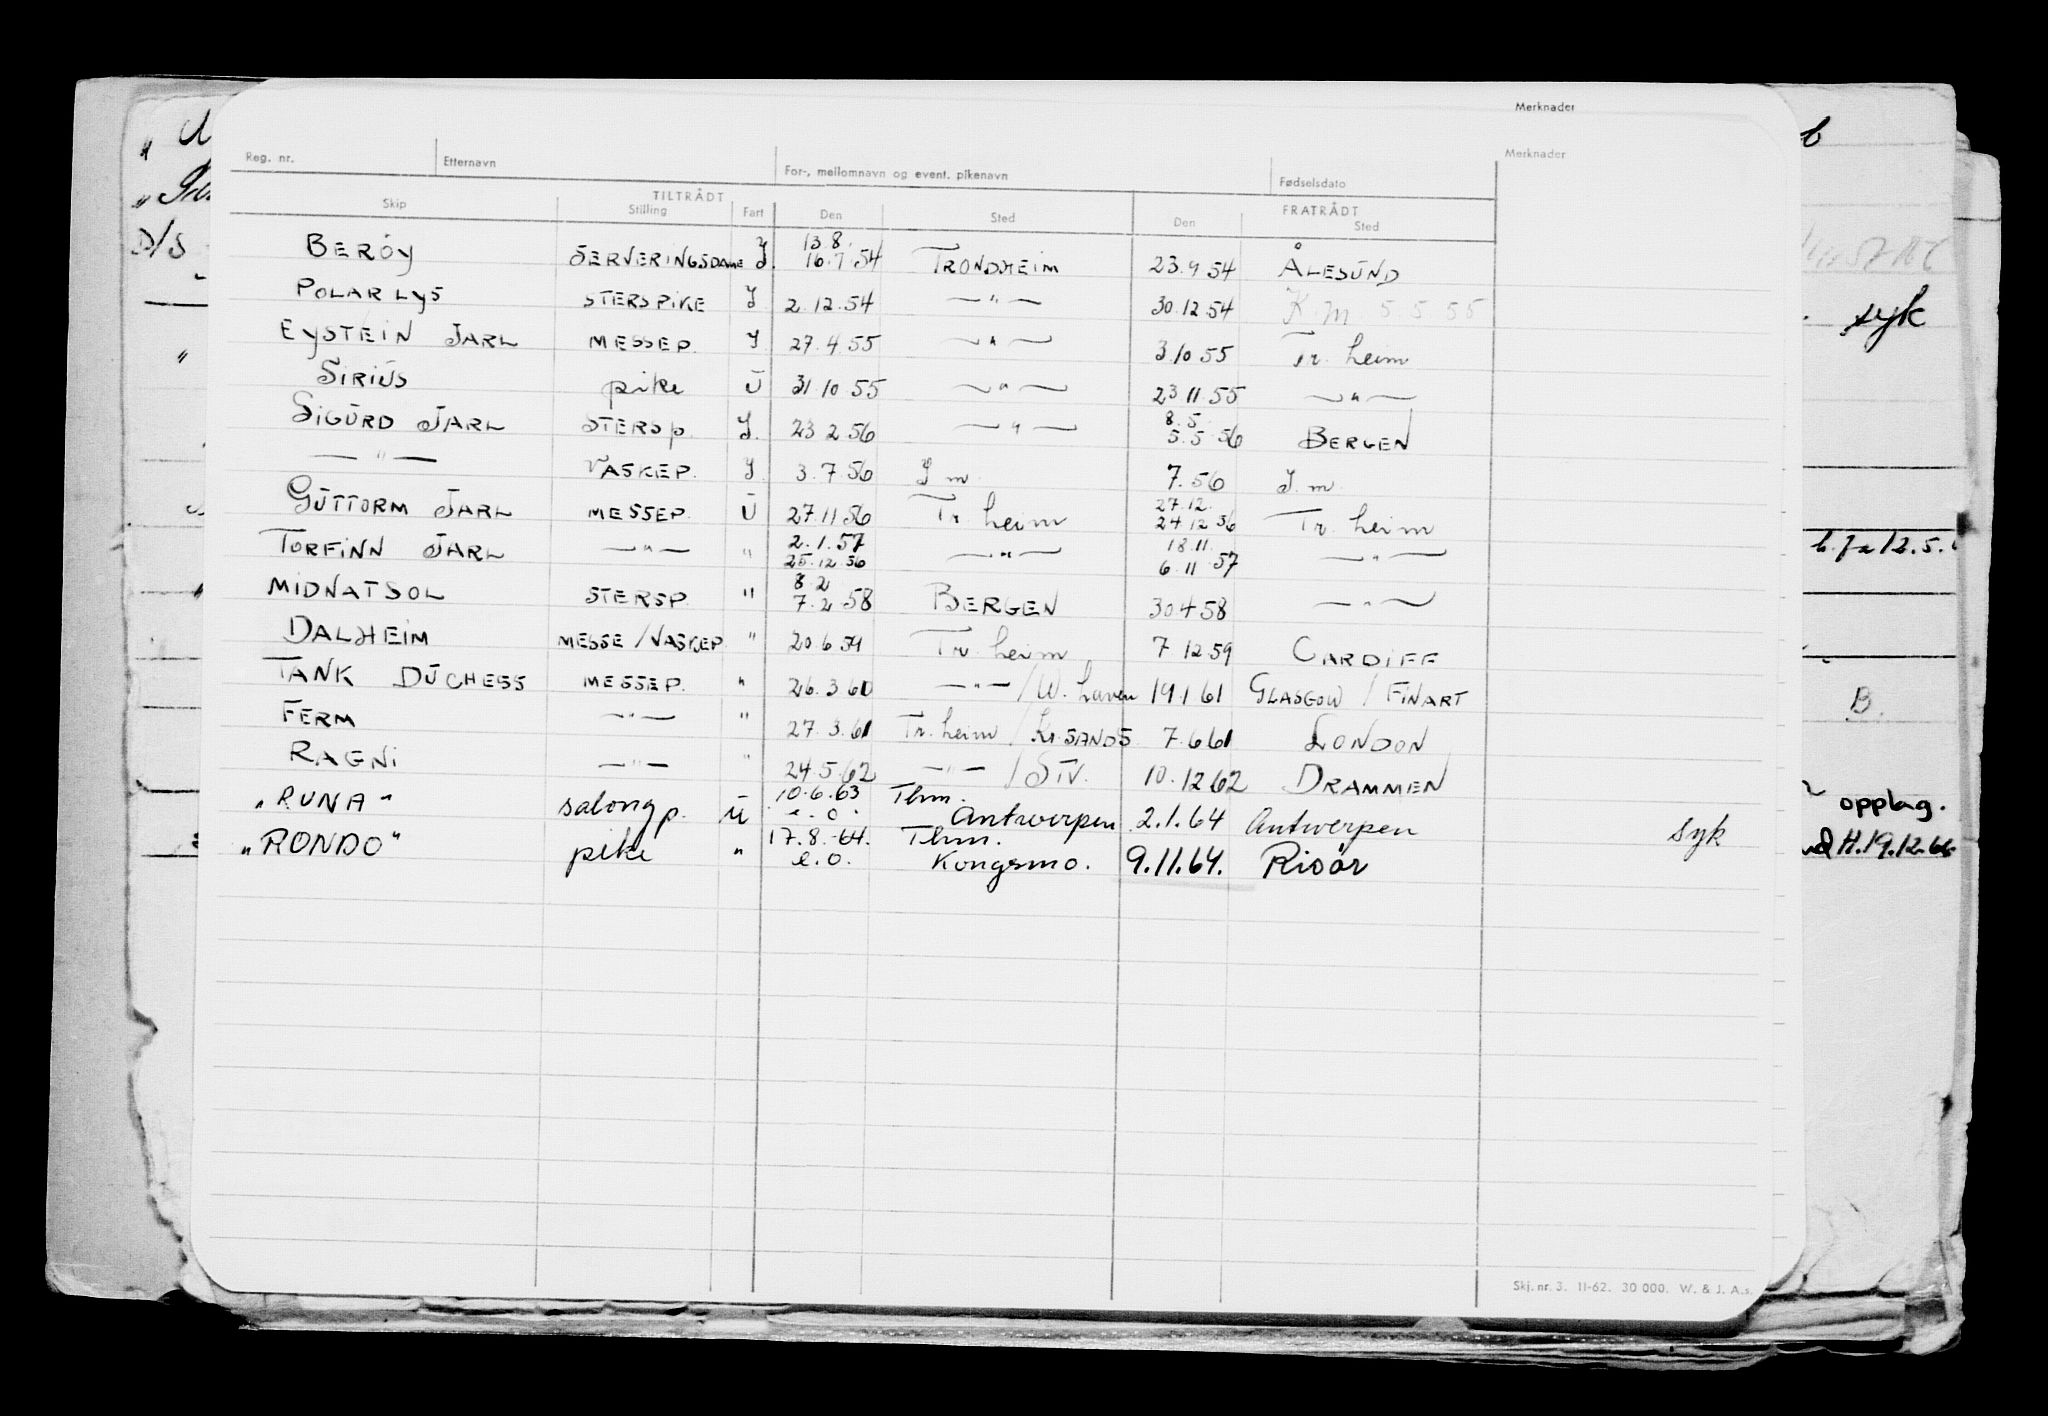 Merknader
Reg. nr. Etternavn For-, mellomnavn og event. pikenavn Fødselsdato Merknader
TILTRÅDT FRATRÅDT
Skip Stilling Fart Den Sted Den Sted
BERÖY SERVERINGSDAME J. 13.8. 16.7.54 TRONDHEIM 23.9.54 ÅLESUND
POLARLYS STERSPIKE J 2.12.54 —"— 30.12.54 K.M. 5.5.55
EYSTEIN JARL MESSEP. J 27.4.55 —"— 3.10.55 Tr. heim
SIRIUS pike U 31.10.55 —"— 23.11.55 —"—
SIGURD JARL STERSP. J. 23.2.56 —"— 8.5. 5.5.56 BERGEN
—"— VASKEP. J 3.7.56 J.m. 7.56 J.m.
GUTTORM JARL MESSEP. U 27.11.56 Tr. heim 27.12. 24.12.56 Tr. heim
TORFINN JARL —"— " 2.1.57 25.12.56 —"— 18.11. 6.11.57 —"—
MIDNATSOL STERSP. " 8.2 7.2.58 BERGEN 30.4.58 —"—
DALHEIM MESSE/VASKEP " 20.6.59 Tr. heim 7.12.59 CARDIFF
TANK DUCHESS MESSEP. " 26.3.60 —"—/W. haven 19.1.61 GLASGOW / FINART
FERM —"— " 27.3.61 Tr. heim / Kr.SANDS 7.6.61 LONDON
RAGNI —"— " 24.5.62 —"—/STV. 10.12.62 DRAMMEN
"RUNA" salongp. U 10.6.63 e.o. Thm. Antwerpen 2.1.64 Antwerpen syk
"RONDO" pike " 17.8.64. e.o. Thm. Kongsmo. 9.11.64. Risör
D/S
syk
B.
opplag.
H.19.12.66
Skj. nr. 3. 11-62. 30 000. W. & J. A.s.